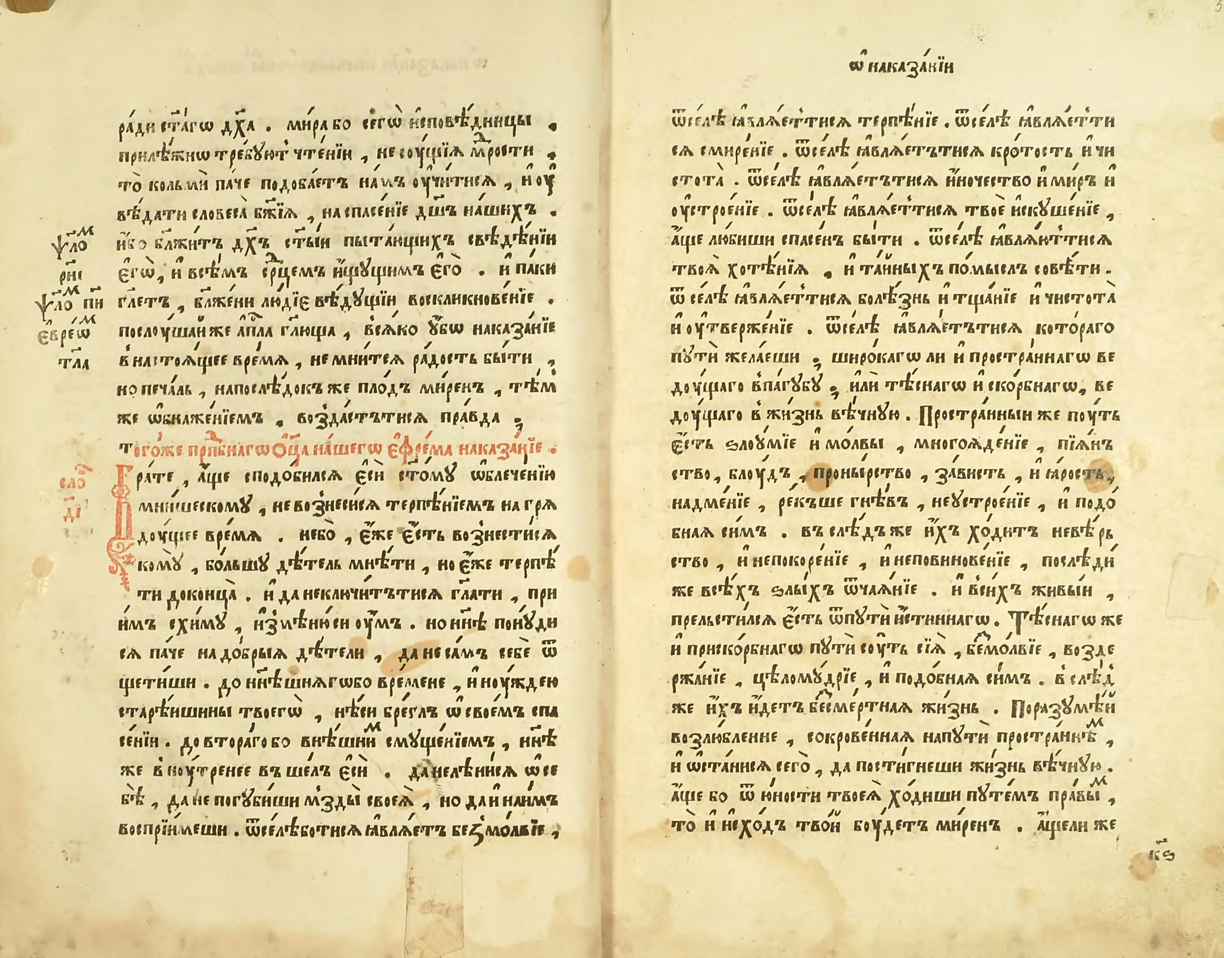 ра́ди ст҃а́гѡ дх҃а . мира бо сегѡ̀ и҆сповѣ́дницы ,
прилѣ́жнѡ тре́буют чте́нїи , не со́ущїѧ мⷣрости ,
то̀ кольмѝ паче подоба́етъ на́мъ оучи́тисѧ , и҆ оу
вѣ́дати словеса̀ бж҃їѧ , на спасе́нїе дш҃ъ на́шихъ .
и҆́бо бл҃жи́тъ дх҃ъ ст҃ы́и пыта́ющихъ свѣ́дѣ́нїи
є҆гѡ̀ , и҆ всѣ́мъ срⷣцемъ и҆́щущимъ є҆го̀ . и҆ па́ки
ѱа́лоⷨ
риі
гл҃етъ , бл҃же́ни лю́дїе вѣ́дущїи воскликнове́нїе .
ѱа́лоⷨ пи
послоушай же а҆пⷭ҇ла гл҃юща , всѧ́ко у҆́бѡ наказа́нїе
є҆вре́ѡⷨ
в настоѧ́щее вре́мѧ , не мни́тсѧ ра́дость бы́ти ,
тл҃а
но печа́ль , напослѣ́докъ же пло́дъ ми́ренъ , тѣ́м
же ѡ҆бнаже́нїемъ , возда́стътисѧ пра́вда ;
того́же прпⷣбнагѡ ѻ҆ц҃а на́шегѡ є҆фре́ма наказа́нїе .
сло́
ді
Бра́те , а҆́ще сподо́билсѧ є҆сѝ ст҃ому ѡ҆блече́нїю
мни́шескому , не вознеси́сѧ терпѣ́нїемъ на грѧ
до́ущее вре́мѧ . не бо̀ , є҆́же є҆́сть вознести́сѧ
кому̀ , бо́льшу дѣ́тель мнѣ́ти , но є҆́же терпѣ́
ти до конца̀ . и҆ да не ключи́тътисѧ гл҃ати , при
и҆́мъ схи́му , и҆змѣни́сѧ оумъ . но нн҃ѣ пону́ди
сѧ па́че на до́брыѧ дѣ́тели , да не са́мъ себѐ ѿ
щети́ши . до нн҃ѣшнѧгѡ бо вре́мене , и҆ ноу́ждею
старѣ́ишины твоегѡ̀ , нѣ́си бре́глъ ѡ҆ свое́мъ спа
се́нїи . до втора́го бо внѣ́шниⷨ смуще́нїемъ , нн҃ѣ
же в ноу́тренее въше́лъ є҆сѝ . да не лѣни́сѧ ѡ҆ се
бѣ̀ , да не погуби́ши мзды̀ своеѧ̀ , но да и҆ наи́мъ
воспрїи́меши . ѿсе́лѣ бо тисѧ ꙗ҆влѧ́етъ безмо́лвїе ,
ѡ҆ наказа́нїи
ѿсе́лѣ ꙗ҆влѧ́еттисѧ терпѣ́нїе . ѿсе́лѣ ꙗ҆влѧ́етти
сѧ смире́нїе . ѿсе́лѣ ꙗ҆влѧ́етътисѧ кро́тость и҆ чи
стота̀ . ѿсе́лѣ ꙗ҆влѧ́етътисѧ и҆́ночество и҆ ми́ръ и҆
оустрое́нїе . ѿсе́лѣ ꙗ҆влѧ́еттисѧ твоѐ и҆скуше́нїе ,
а҆́ще лю́биши спасе́нъ бы́ти . ѿсе́лѣ ꙗ҆влѧ́юттисѧ
твоѧ̀ хотѣ́нїѧ , и҆ та́йныхъ по́мыслъ совѣ́ти .
ѿ селѣ ꙗ҆влѧ́еттисѧ болѣ́знь и҆ тща́нїе и҆ чистота̀
и҆ оутверже́нїе . ѿсе́лѣ ꙗ҆влѧ́етътисѧ кото́раго
путѝ жела́еши ; широ́кагѡ ли и҆ простра́ннагѡ ве
до́ущаго в па́губу ; и҆лѝ тѣ́снагѡ и҆ ско́рбнагѡ , ве
до́ущаго в жи́знь вѣ́чную . Простра́нныи же поу́ть
є҆́сть ѕлоу́мїе и҆ мо́лвы , многоѧде́нїе , пїѧ́нъ
ство , блоу́дъ , проны́рство , за́висть , и҆ ꙗ҆́рость ,
надме́нїе , ре́къше гнѣ́въ , неустрое́нїе , и҆ подо́
бная си́мъ . въ слѣ́дъ же и҆́хъ хо́дит невѣ́рь
ство , и҆ непокоре́нїе , и҆ неповинове́нїе , послѣди́
же всѣ́хъ ѕлы́хъ ѿча́ѧнїе . и҆ в си́хъ живы́и ,
прельсти́лсѧ є҆́сть ѿ путѝ и҆́стиннагѡ . Тѣ́снагѡ же
и҆ приско́рбнагѡ путѝ со́уть сїѧ̀ , безмо́лвїе , возде
ржа́нїе , цѣлому́дрїе , и҆ подо́бная си́мъ . в слѣ́д
же и҆́хъ и҆́детъ бесме́ртная жи́знь . Поразумѣ́й
возлю́бленне , сокрове́нная на путѝ простра́ннѣⷨ ,
и҆ ѡ҆ста́нисѧ сего̀ , да пости́гнеши жи́знь вѣ́чную .
а҆́ще бо ѿ ю҆́ности твоеѧ̀ хо́диши путе́мъ пра́выⷨ ,
то̀ и҆ и҆схо́дъ тво́й боу́детъ ми́ренъ . а҆́ще ли же
кѕ